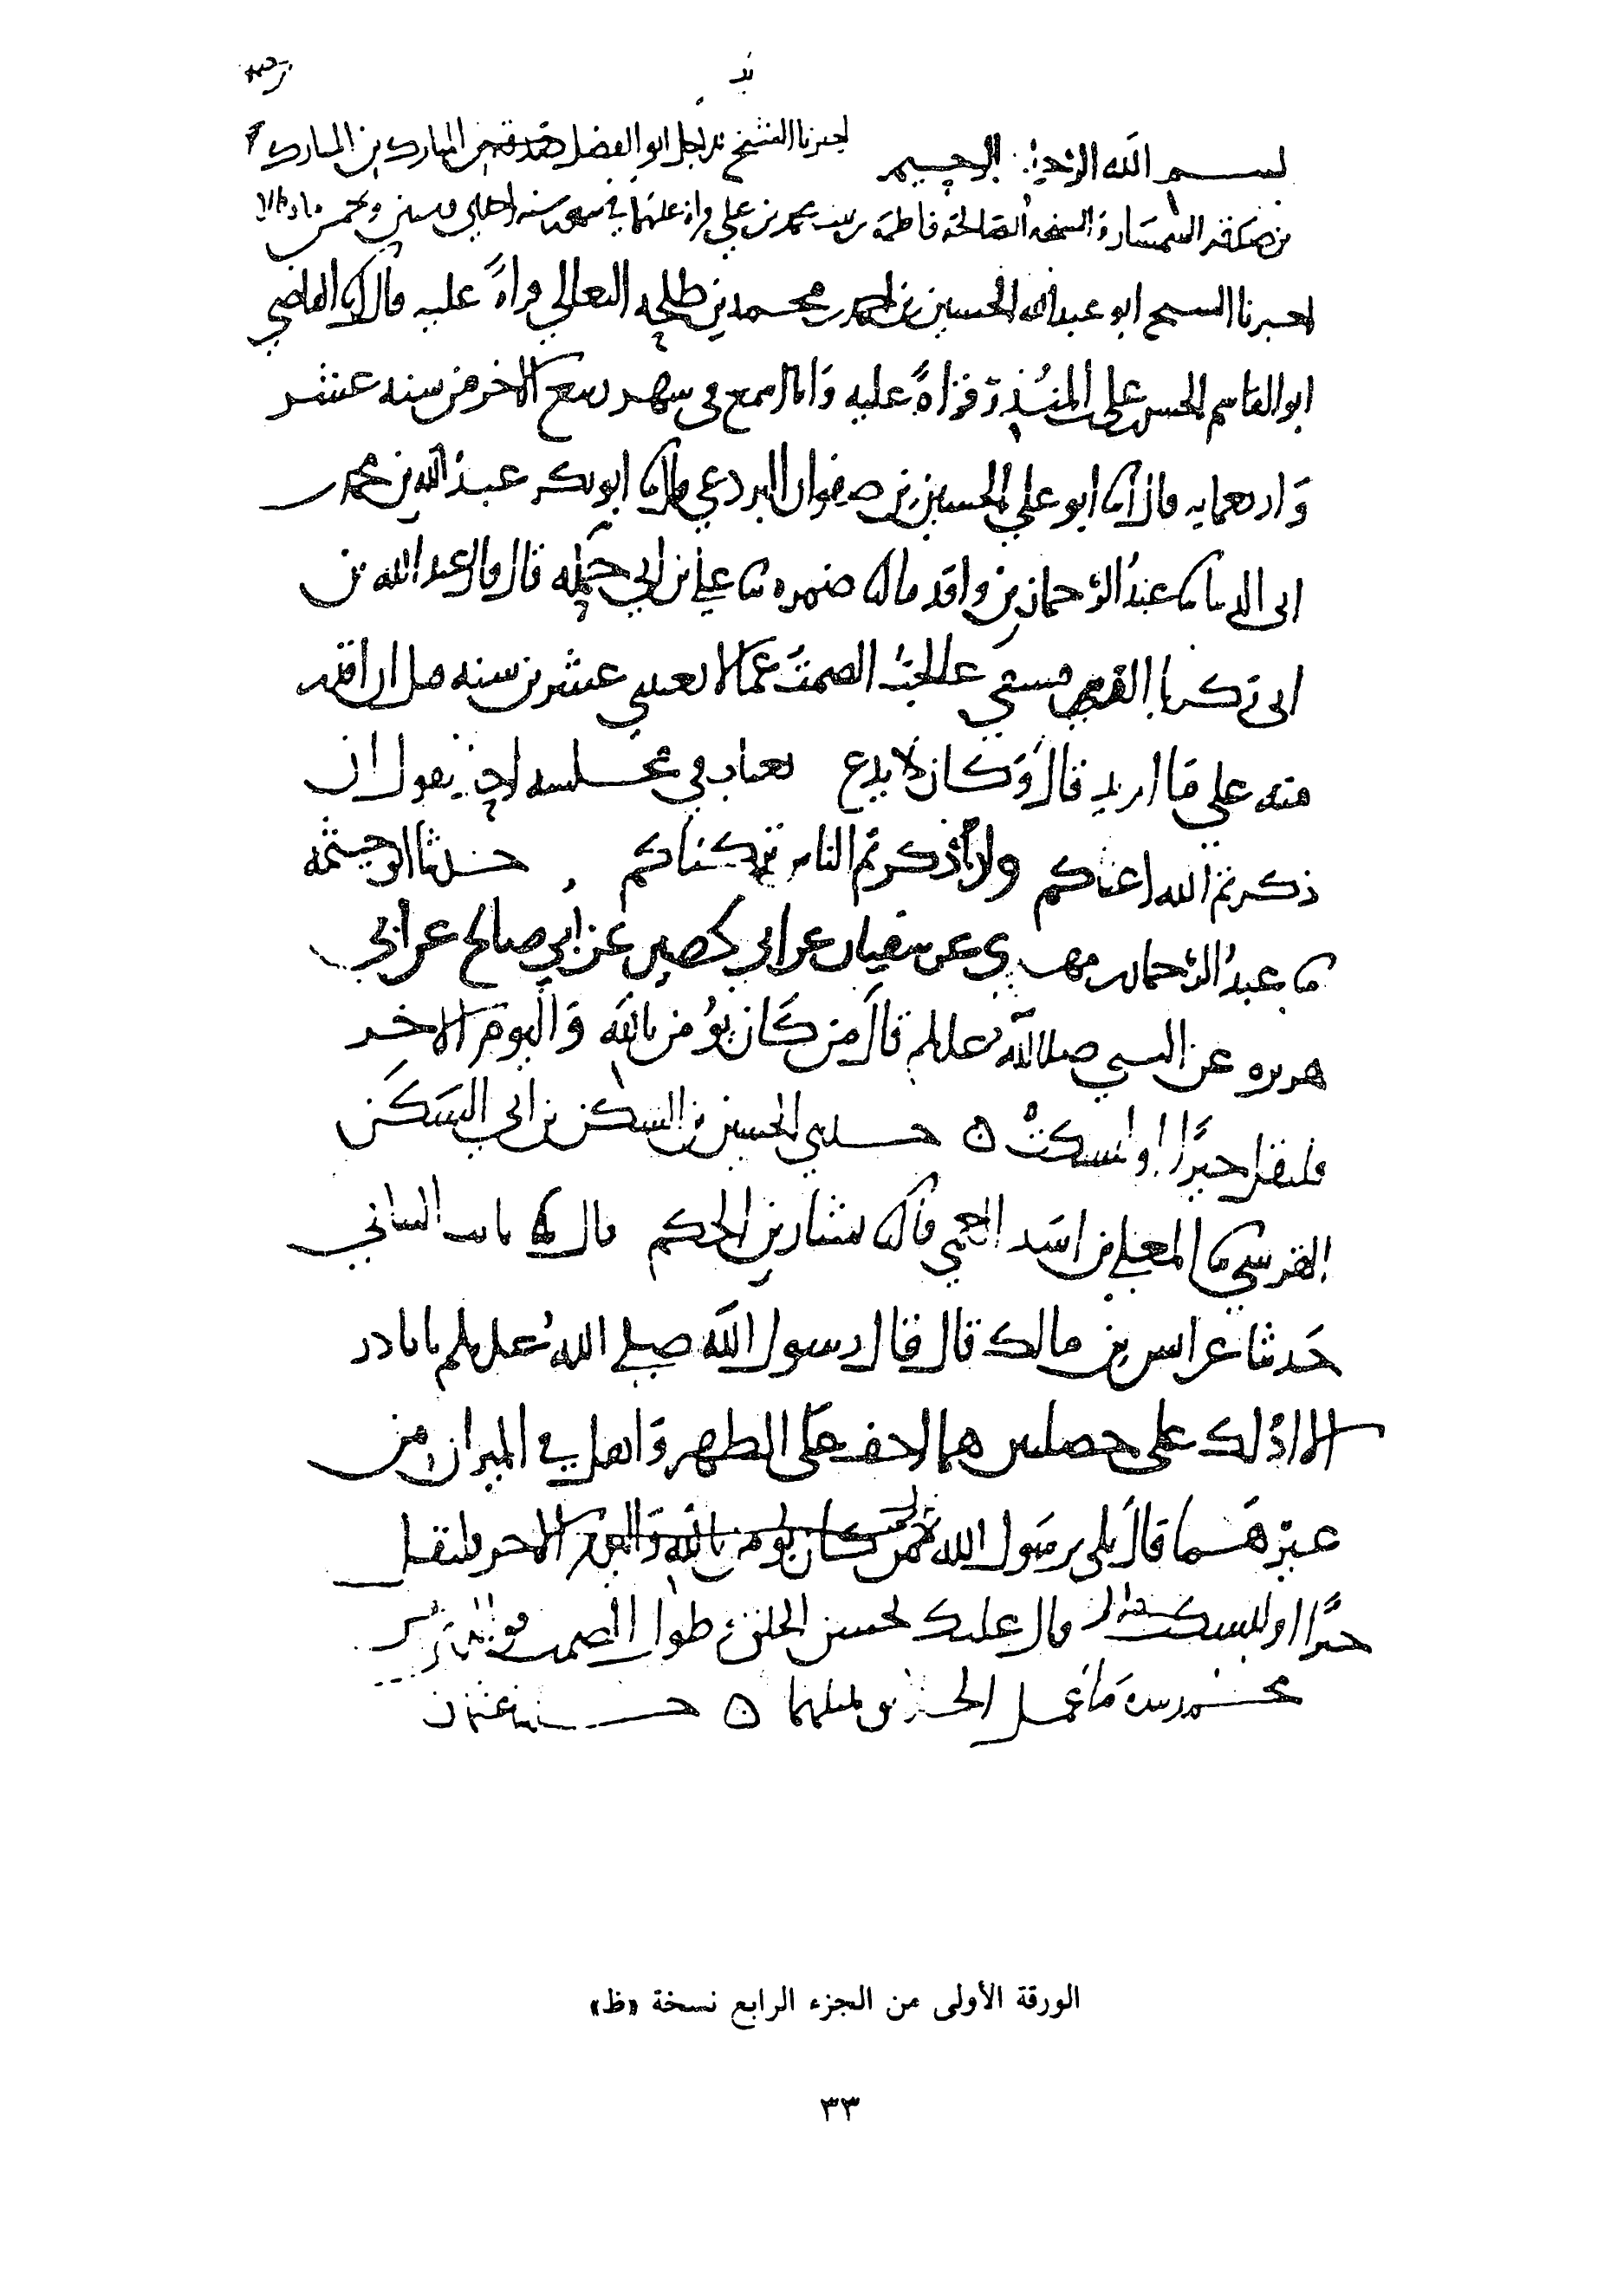 بسم الله الرحمن الرحيم اخبرنا الشيخ ابو الفضل المبارك بن المبارك
بن صدقه السمسار والشيخه الصالحة فاطمة بنت محمد بن علي قراة عليهما في سنه احدى وستين وخمس
اخبرنا الشيخ ابو عبد الله الحسين بن احمد بن محمد بن طلحه النعالي قراةً عليه قال انا القاضي
ابو القاسم الحسن بن علي المنذر قراةً عليه وانا اسمع في شهر ربيع الاخر من سنه عشر
واربعمايه قال انا ابو علي الحسين بن صفوان البردعي قال نا ابو بكر عبد الله بن محمد بن
ابي الدنيا نا عبد الرحمان بن واقد قال نا ضمره نا علي بن ابي حمله قال قال عبد الله بن
ابي زكريا الدمشقي عالجت الصمت عما لا يعنيني عشرين سنه قل ان اقدر
منه على ما اريد قال وكان لا يدع يعتاب في مجلسه احد يقول ان
ذكرتم الله اعناكم وان ذكرتم الناس تركناكم حدثنا ابو خيثمه
نا عبد الرحمان بن مهدي عن سفيان عن ابي حصين عن ابي صالح عن ابي
هريره عن النبي صلى الله عليه وسلم قال من كان يؤمن بالله واليوم الاخر
فليقل خيرًا او ليسكت ه حدثني الحسين بن السكن بن ابي السكن
القرشي نا المعلى بن اسد العمي قال نا بشار بن الحكم قال نا ثابت البناني
حدثنا عن انس بن مالك قال قال رسول الله صلى الله عليه وسلم يا با ذر
الا ادُلك على خصلتين هما اخف على الظهر واثقل في الميزان من
غيرهما قال بلى يرسول الله من كان يومن بالله واليوم الاخر فليقل
خيرًا او ليسكت قال عليك بحسن الخلق وطول الصمت فوالذي نفس
محمد بيده ما عمل الخلايق بمثلهما ه
الورقة الأولى من الجزء الرابع نسخة «ظ»
٣٣